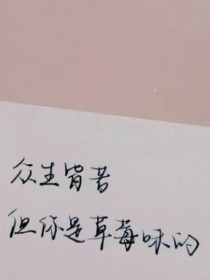 众生皆苦
但你是草莓味的